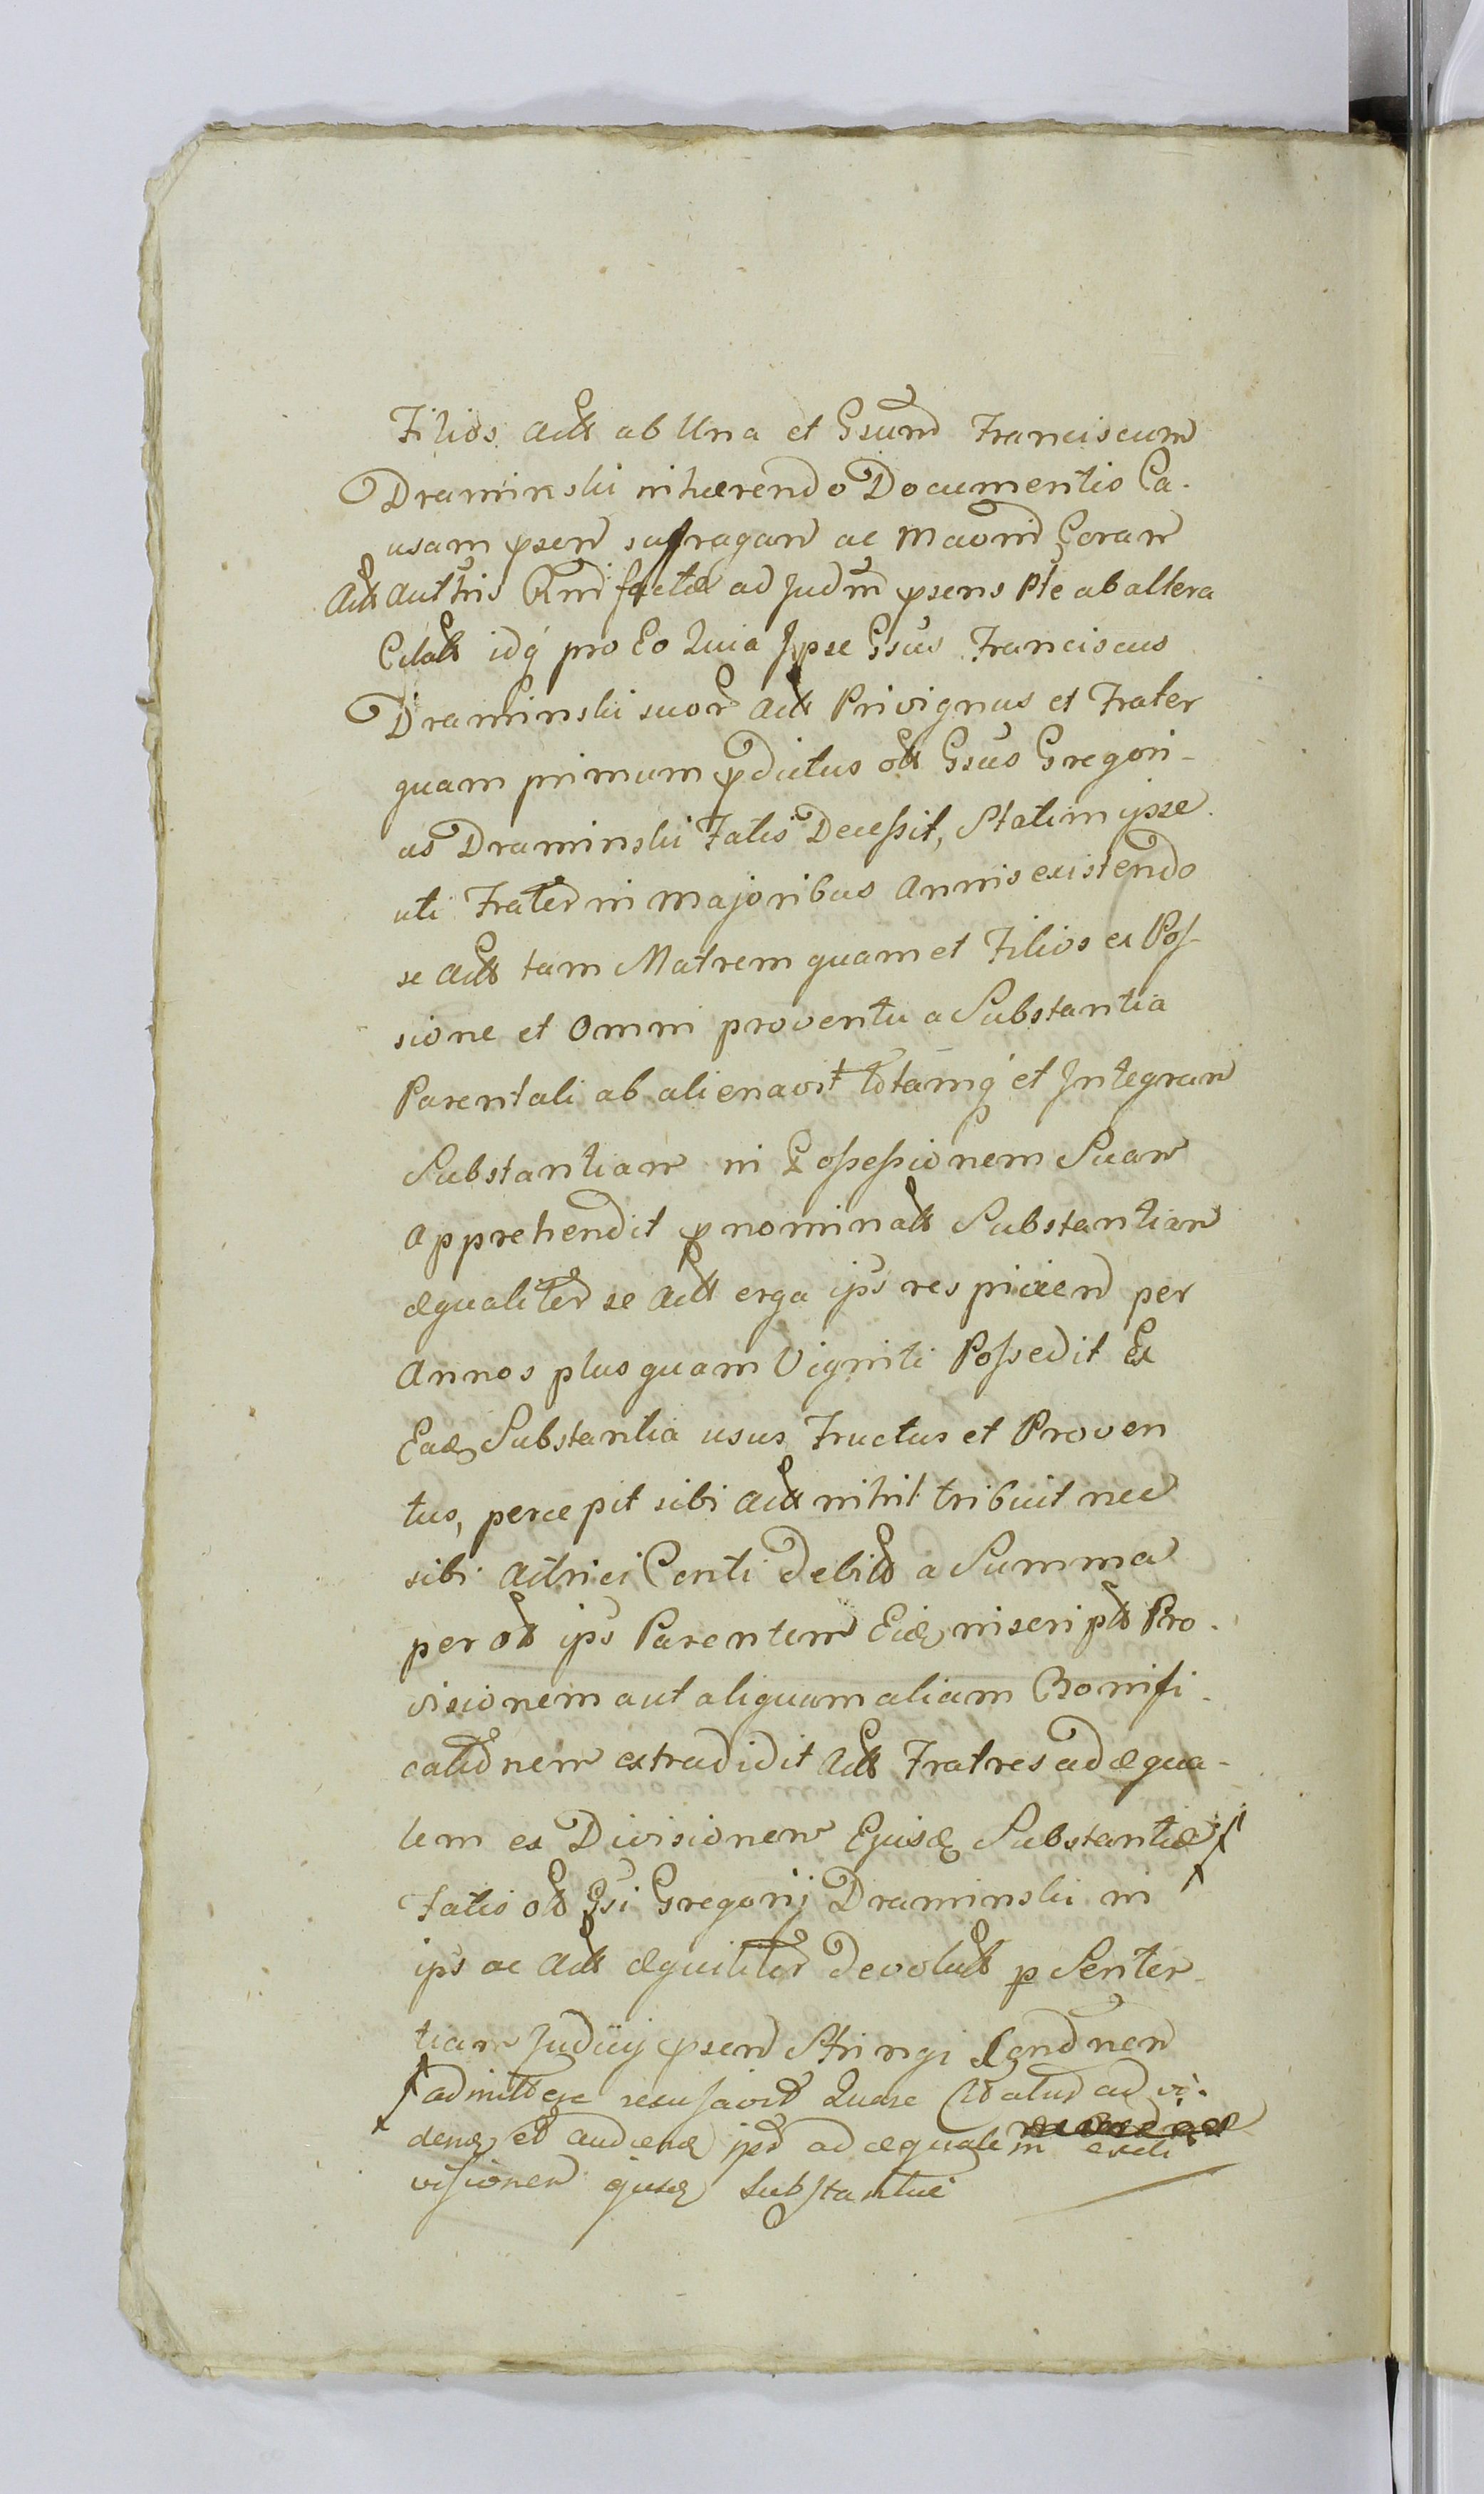 Filios Act ab Una et Gsum Franciscum
Draminski inhærendo Documentis Ca-
usam psen sufragan ac Maoni Coram
Act Authis Rndi factæ ad Judm psens Pte ab altera
Citat idq pro Eo Quia Ipse Gsus Franciscus
Draminski suor Act Privignus et Frater
quam primum pdictus olt Gsus Gregori-
us Draminski Fatis Decessit, Statim ipse
uti Frater in Majoribus Annis existendo
se Act tam Matrem quam et Filios ex Pos-
sione et Omni proventu a Substantia
Parentali ab alienavit totamq et Integram
Substantiam in Possessionem Suam
Apprehendit pnominat Substantiam
æqualiter se Act erga ips respicien per
Annos plusquam Viginti Possedit Ex
Eadq Substantia usus Fructus et Proven
tus, percepit sibi Act nihil tribuit nec
sibi Actrici Centi Debito a Summa
per olt ips Parentem Eidq inscript Pro-
visionem aut aliquam aliam Bonifi-
cationem extradidit Act Fratres ad æqua-
lem ex Divisionem Ejusdq Substantiæ
Fatis olt Gsi Gregorij Draminski in
ips ac Act æquiliter devolut p Senten-
tiam Judicij psen Stringi Condnem
admittere recusavit Quare Citatur ad vi-
denq et audienq ips ad æqualem exdi
visionem ejusdq Substantiæ